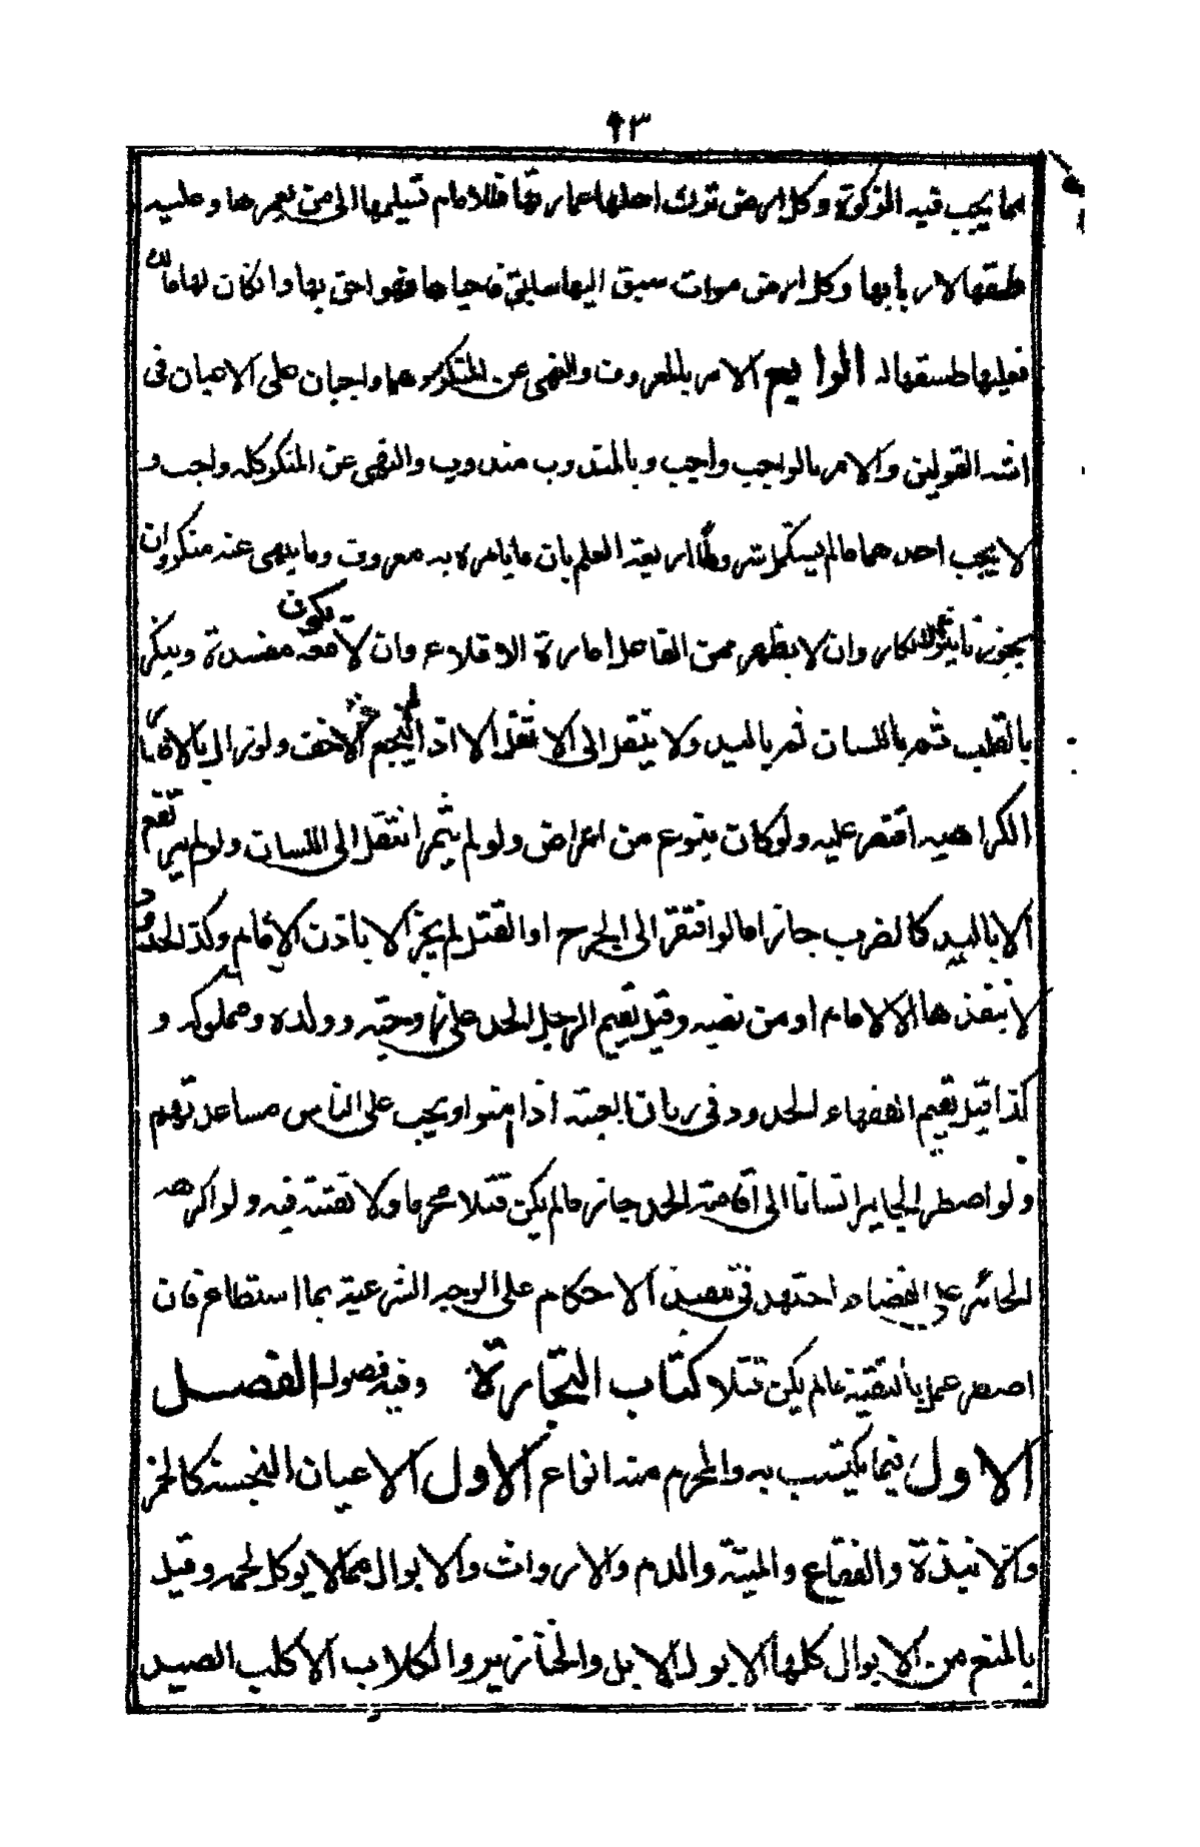 ٩٣
مما يجب فيه الزكوة وكل ارض ترك اهلها عمارتها فللامام تسليمها الى من يعمرها وعليه
طسقها لاربابها وكل ارض موات سبق اليها سابق فاحياها فهو احق بها وانكان لها مالك
فعليها طسقها له الرابع الامر بالمعروف والنهى عن المنكر وهما واجبان على الاعيان فى
اشبه القولين والامر بالواجب واجب وبالمندوب مندوب والنهى عن المنكر كله واجب و
لا يجب احدهما مالم يستكمل شروطا اربعة العلم بان ما يامر به معروف وما ينهى عنه منكر وان
يجوز تاثير الانكار وان لا يظهر من الفاعل امارة الاقلاع وان لا يكون معه مفسدة وينكر
بالقلب ثم باللسان ثم باليد ولا ينتقل الى الاثقل الا اذا لم ينجع الاخف ولو زال باظهار
الكراهيه اقتصر عليه ولو كان بنوع من اعراض ولو لم يثمر انتقل الى اللسان ولو لم يرتفع
الا باليد كالضرب جاز اما لو افتقر الى الجرح او القتل لم يجز الا باذن الامام وكذا الحدود
لا ينفذها الا الامام او من نصبه وقيل يقيم الرجل الحد على زوجته وولده ومملوكه و
كذا قيل يقيم الفقهاء الحدود فى زمان الغيبة اذا امنوا ويجب على الناس مساعدتهم
ولو اضطر الجاير انسانا الى اقامة الحد جاز مالم يكن قتلا محرما ولا تقية فيه ولو اكرهه
الجائر على القضاء اجتهد فى تنفيذ الاحكام على الوجه الشرعية بما استطاع فان
اضطر عمل بالتقية مالم يكن قتلا كتاب التجارة وفيه فصول الفصل
الاول فيما يكتسب به والمحرم منه انواع الاول الاعيان النجسة كالخمر
والانبذة والفقاع والميتة والدم والارواث والابوال مما لا يوكل لحمه وقيل
بالمنع من الابوال كلها الا بول الابل والخنازير والكلاب الا كلب الصيد